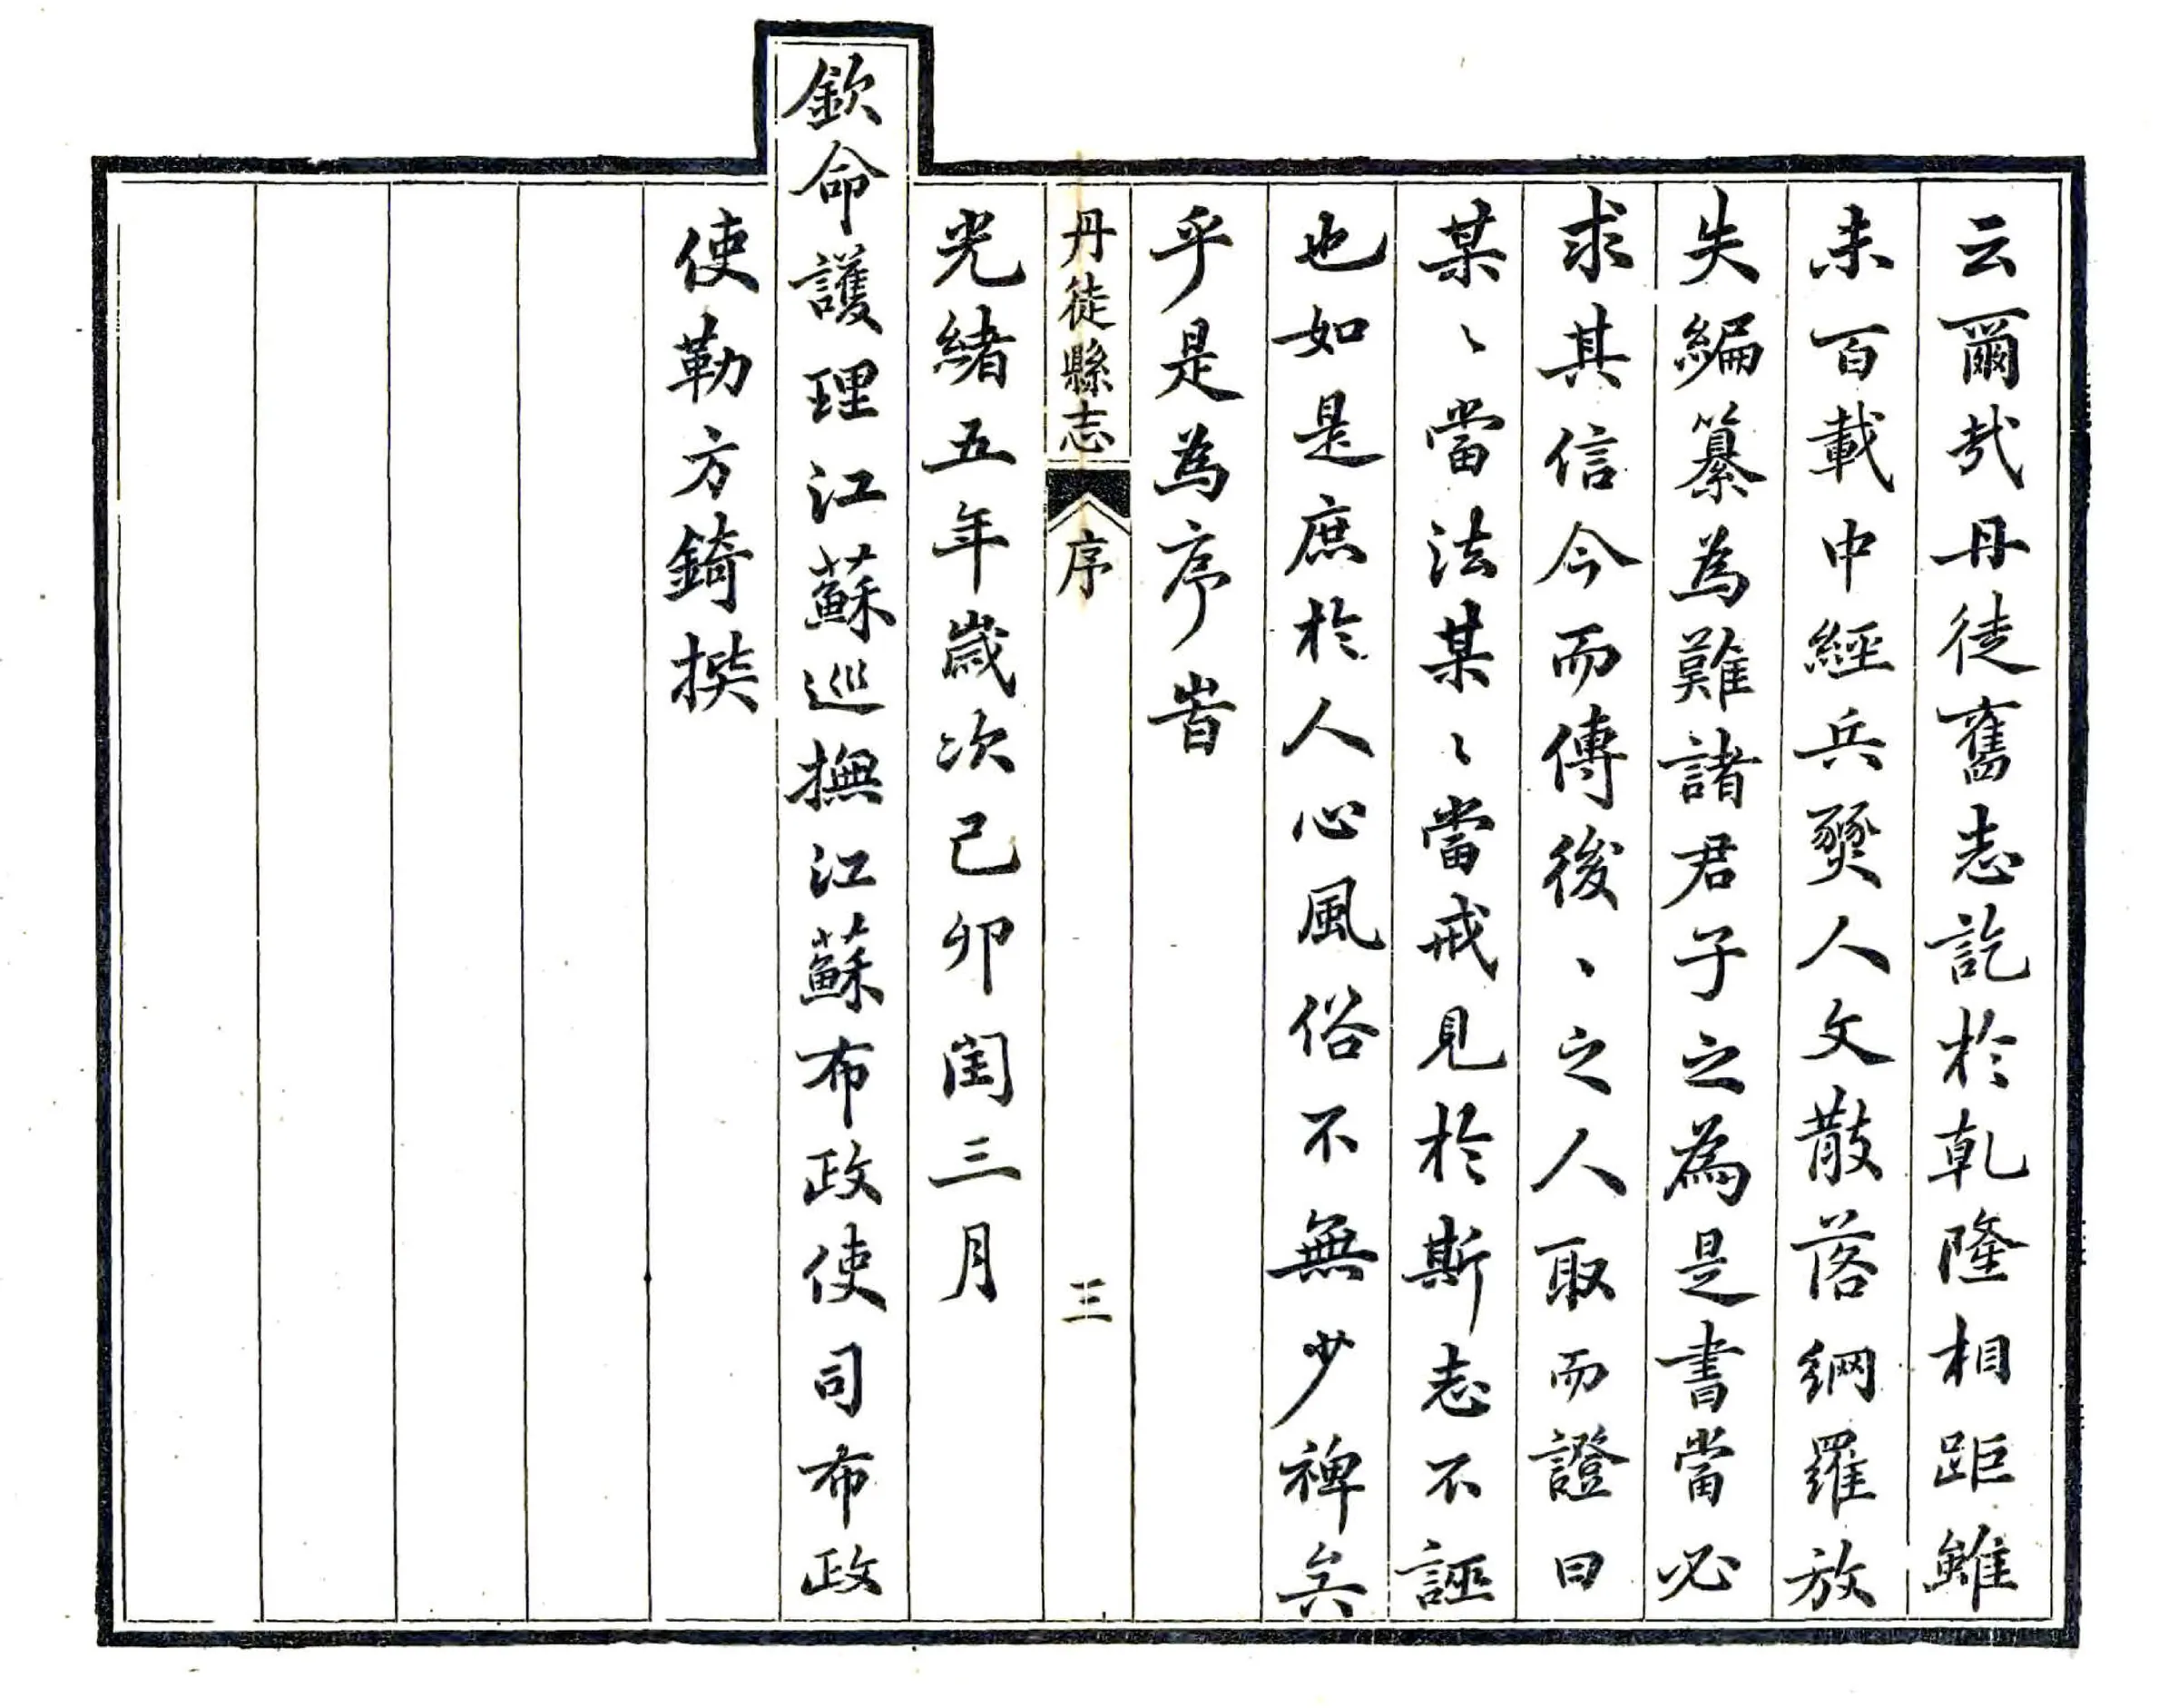 云爾哉丹徒舊志訖於乾隆相距雖
未百載中經兵燹人文散落網羅放
失編纂為難諸君子之為是書當必
求其信今而傳後、之人取而證曰
某〻當法某〻當戒見於斯志不誣
也如是庶於人心風俗不無少裨矣
乎是為序
丹徒縣志 序 三
光緒五年歲次己卯閏三月
欽命護理江蘇巡撫江蘇布政使司布政
使勒方錡撰